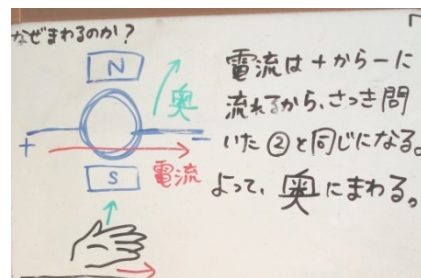 なぜまわるのか？
N
奥
＋
－
S
電流
電流は＋から－に
流れるから、さっき問
いた②と同じになる。
よって、奥にまわる。